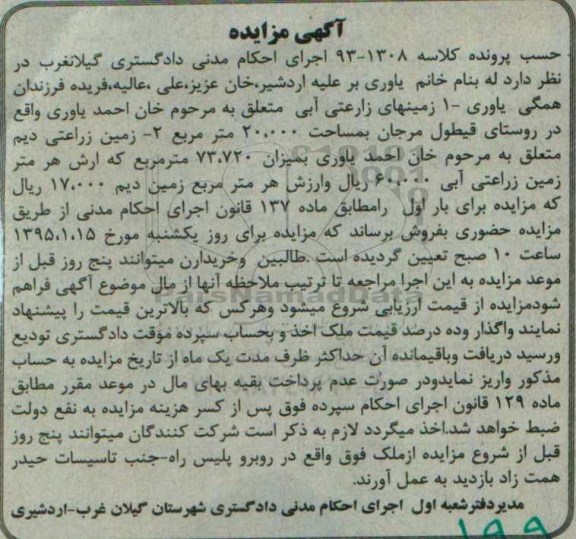 آگهی مزایده
حسب پرونده کلاسه ۱۳۰۸-۹۳ اجرای احکام مدنی دادگستری گیلانغرب در
نظر دارد له بنام خانم یاوری بر علیه اردشیر،خان عزیز،علی ،عالیه،فریده فرزندان
همگی یاوری ۱- زمینهای زارعتی آبی متعلق به مرحوم خان احمد یاوری واقع
در روستای قیطول مرجان بمساحت ۲۰،۰۰۰ متر مربع ۲- زمین زراعتی دیم
متعلق به مرحوم خان احمد یاوری بمیزان ۷۳،۷۲۰ مترمربع که ارش هر متر
زمین زراعتی آبی ۶۰،۰۰۰ ریال وارزش هر متر مربع زمین دیم ۱۷،۰۰۰ ریال
که مزایده برای بار اول رامطابق ماده ۱۳۷ قانون اجرای احکام مدنی از طریق
مزایده حضوری بفروش برساند که مزایده برای روز یکشنبه مورخ ۱۳۹۵،۱،۱۵
ساعت ۱۰ صبح تعیین گردیده است .طالبین وخریدارن میتوانند پنج روز قبل از
موعد مزایده به این اجرا مراجعه تا ترتیب ملاحظه آنها از مال موضوع آگهی فراهم
شودمزایده از قیمت ارزیابی شروع میشود وهرکس که بالاترین قیمت را پیشنهاد
نمایند واگذار وده درصد قیمت ملک اخذ و بحساب سپرده موقت دادگستری تودیع
ورسید دریافت وباقیمانده آن حداکثر ظرف مدت یک ماه از تاریخ مزایده به حساب
مذکور واریز نمایدودر صورت عدم پرداخت بقیه بهای مال در موعد مقرر مطابق
ماده ۱۲۹ قانون اجرای احکام سپرده فوق پس از کسر هزینه مزایده به نفع دولت
ضبط خواهد شد.اخذ میگردد لازم به ذکر است شرکت کنندگان میتوانند پنج روز
قبل از شروع مزایده ازملک فوق واقع در روبرو پلیس راه-جنب تاسیسات حیدر
همت زاد بازدید به عمل آورند.
مدیردفترشعبه اول اجرای احکام مدنی دادگستری شهرستان گیلان غرب-اردشیری
۱۹۹
ParsNamadData